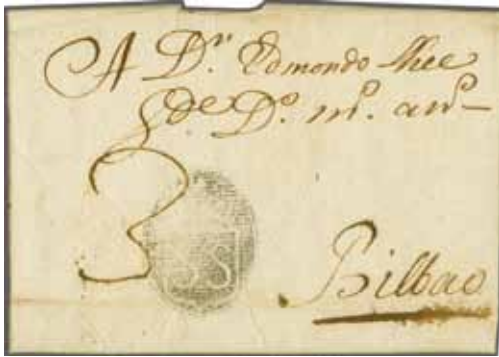 A Dn. Edmondo Shee
gde Ds. ms. an—
3
SS
Bilbao